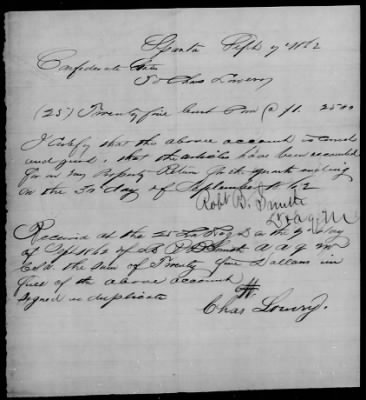 Sparta Sept 9th 1862
Confederate States
To Chas Lowery
(25) Twenty five bush @ $1. 25 00
I certify that the above account is correct
and just, that the articles have been accounted
for in my Property Return for the quarter ending
on the 30 day of September 1862
Robt B. Smith
Received at the 25 La Regt on the 9 day
of Sept 1862 of R B Smith A A Q M
C.S.A. the sum of Twenty five Dollars in
full of the above account
Signed in duplicate
Chas Lowery.